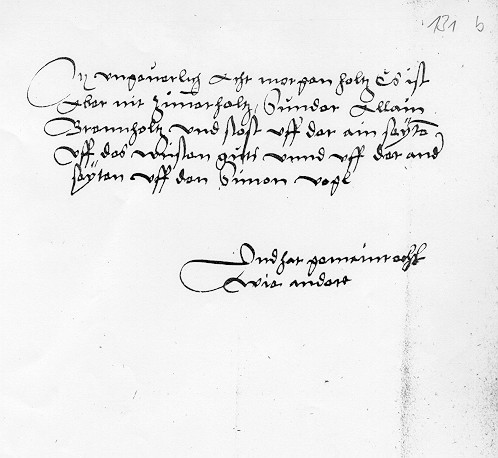 131 b
Itz ungeuerlich Acht morgen holtz Es ist
Aber nit Zimerholtz, Sunder Allain
Brennholtz und stost uff der ain seÿten
uff des wüsten gutt unnd uff der and
seÿten uff den Simon vogl
Und hat gemeinrecht
Wie andere